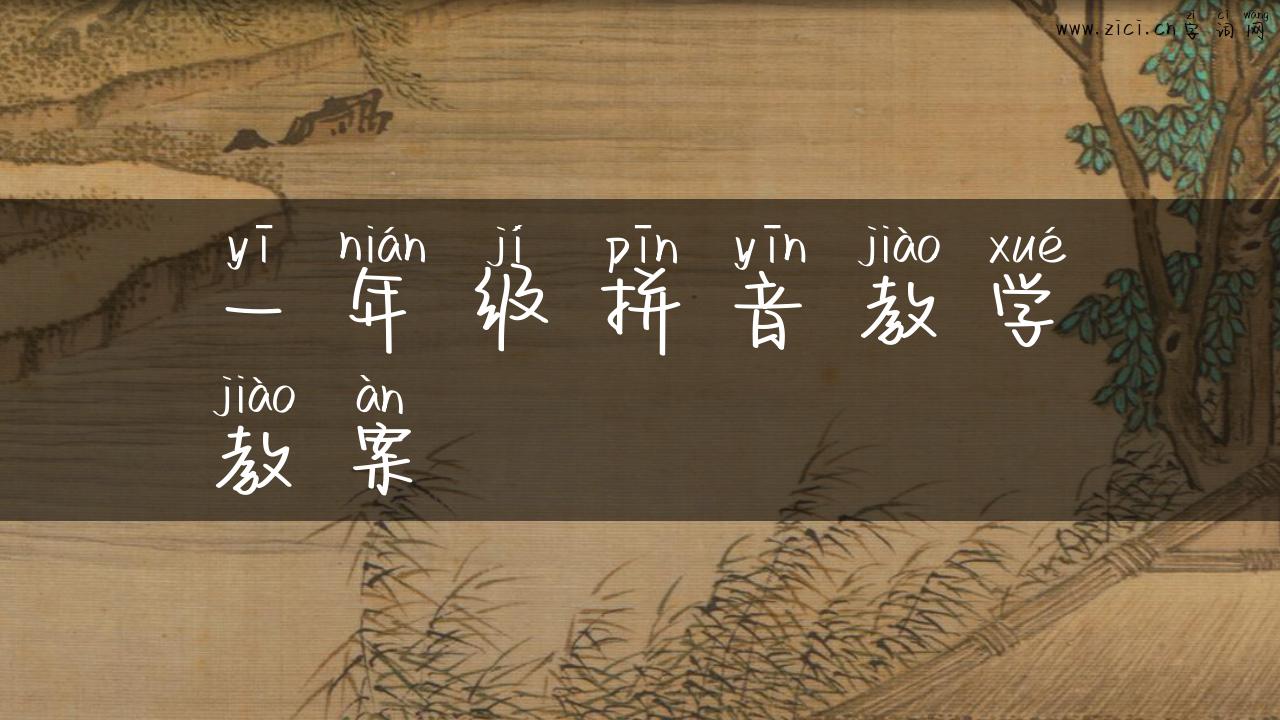 zì cí wǎng
www.zici.cn字词网
yī nián jí pīn yīn jiào xué
一年级拼音教学
jiào àn
教案